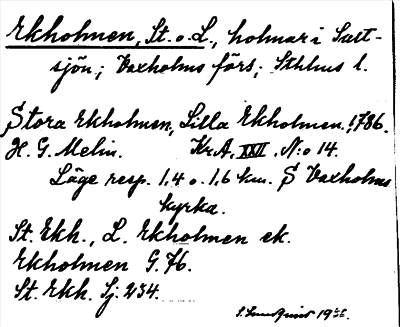 Ekholmen, St. o. L., holmar i Salt-
sjön; Vaxholms förs; Sthlms l.
Stora Ekholmen, Lilla Ekholmen. 1786.
H. G. Melin. Kr.A. XXII. N:o 14.
Läge resp. 1,4 o. 1,6 km. S Vaxholms
kyrka.
St. Ekh., L. Ekholmen ek.
Ekholmen G. 76.
St. Ekh. Sj. 234.